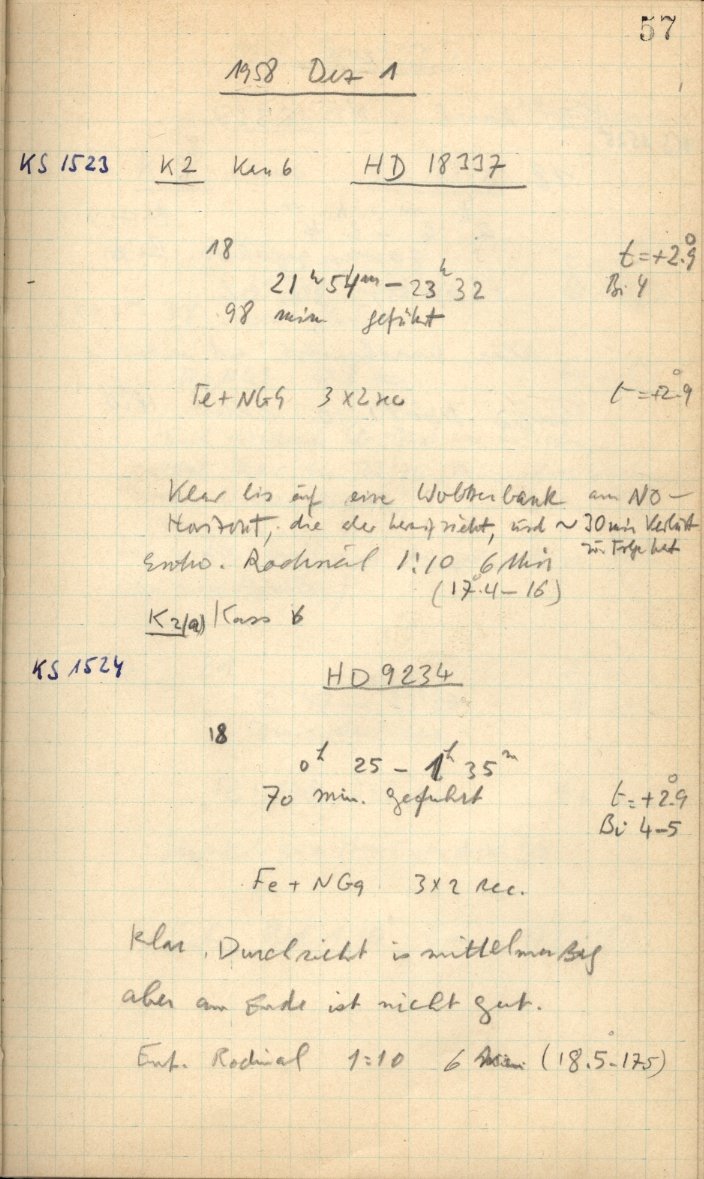 57
1958 Dez 1
KS 1523 K2 Kas 6 HD 18337
18
21h 54m – 23h 32 t=+2.°9
98 min geführt Bi 4
Fe+NGG 3x2 sec t=+2.°9
Klar bis auf eine Wolkenbank am NO–
Horizont, die aber heraufzieht, und ~30 min Verlust
zur Folge hat
Entw. Rodinal 1:10 6 Min
(17.°4–16)
K2(a) Kass 6
KS 1524 HD 9234
18
0h 25 – 1h 35m
70 min. geführt t=+2.°9
Bi 4–5
Fe + NGG 3x2 sec.
klar. Durchsicht is mittelmäßig
aber am Ende ist nicht gut.
Ent. Rodinal 1:10 6 Min (18.°5–175)